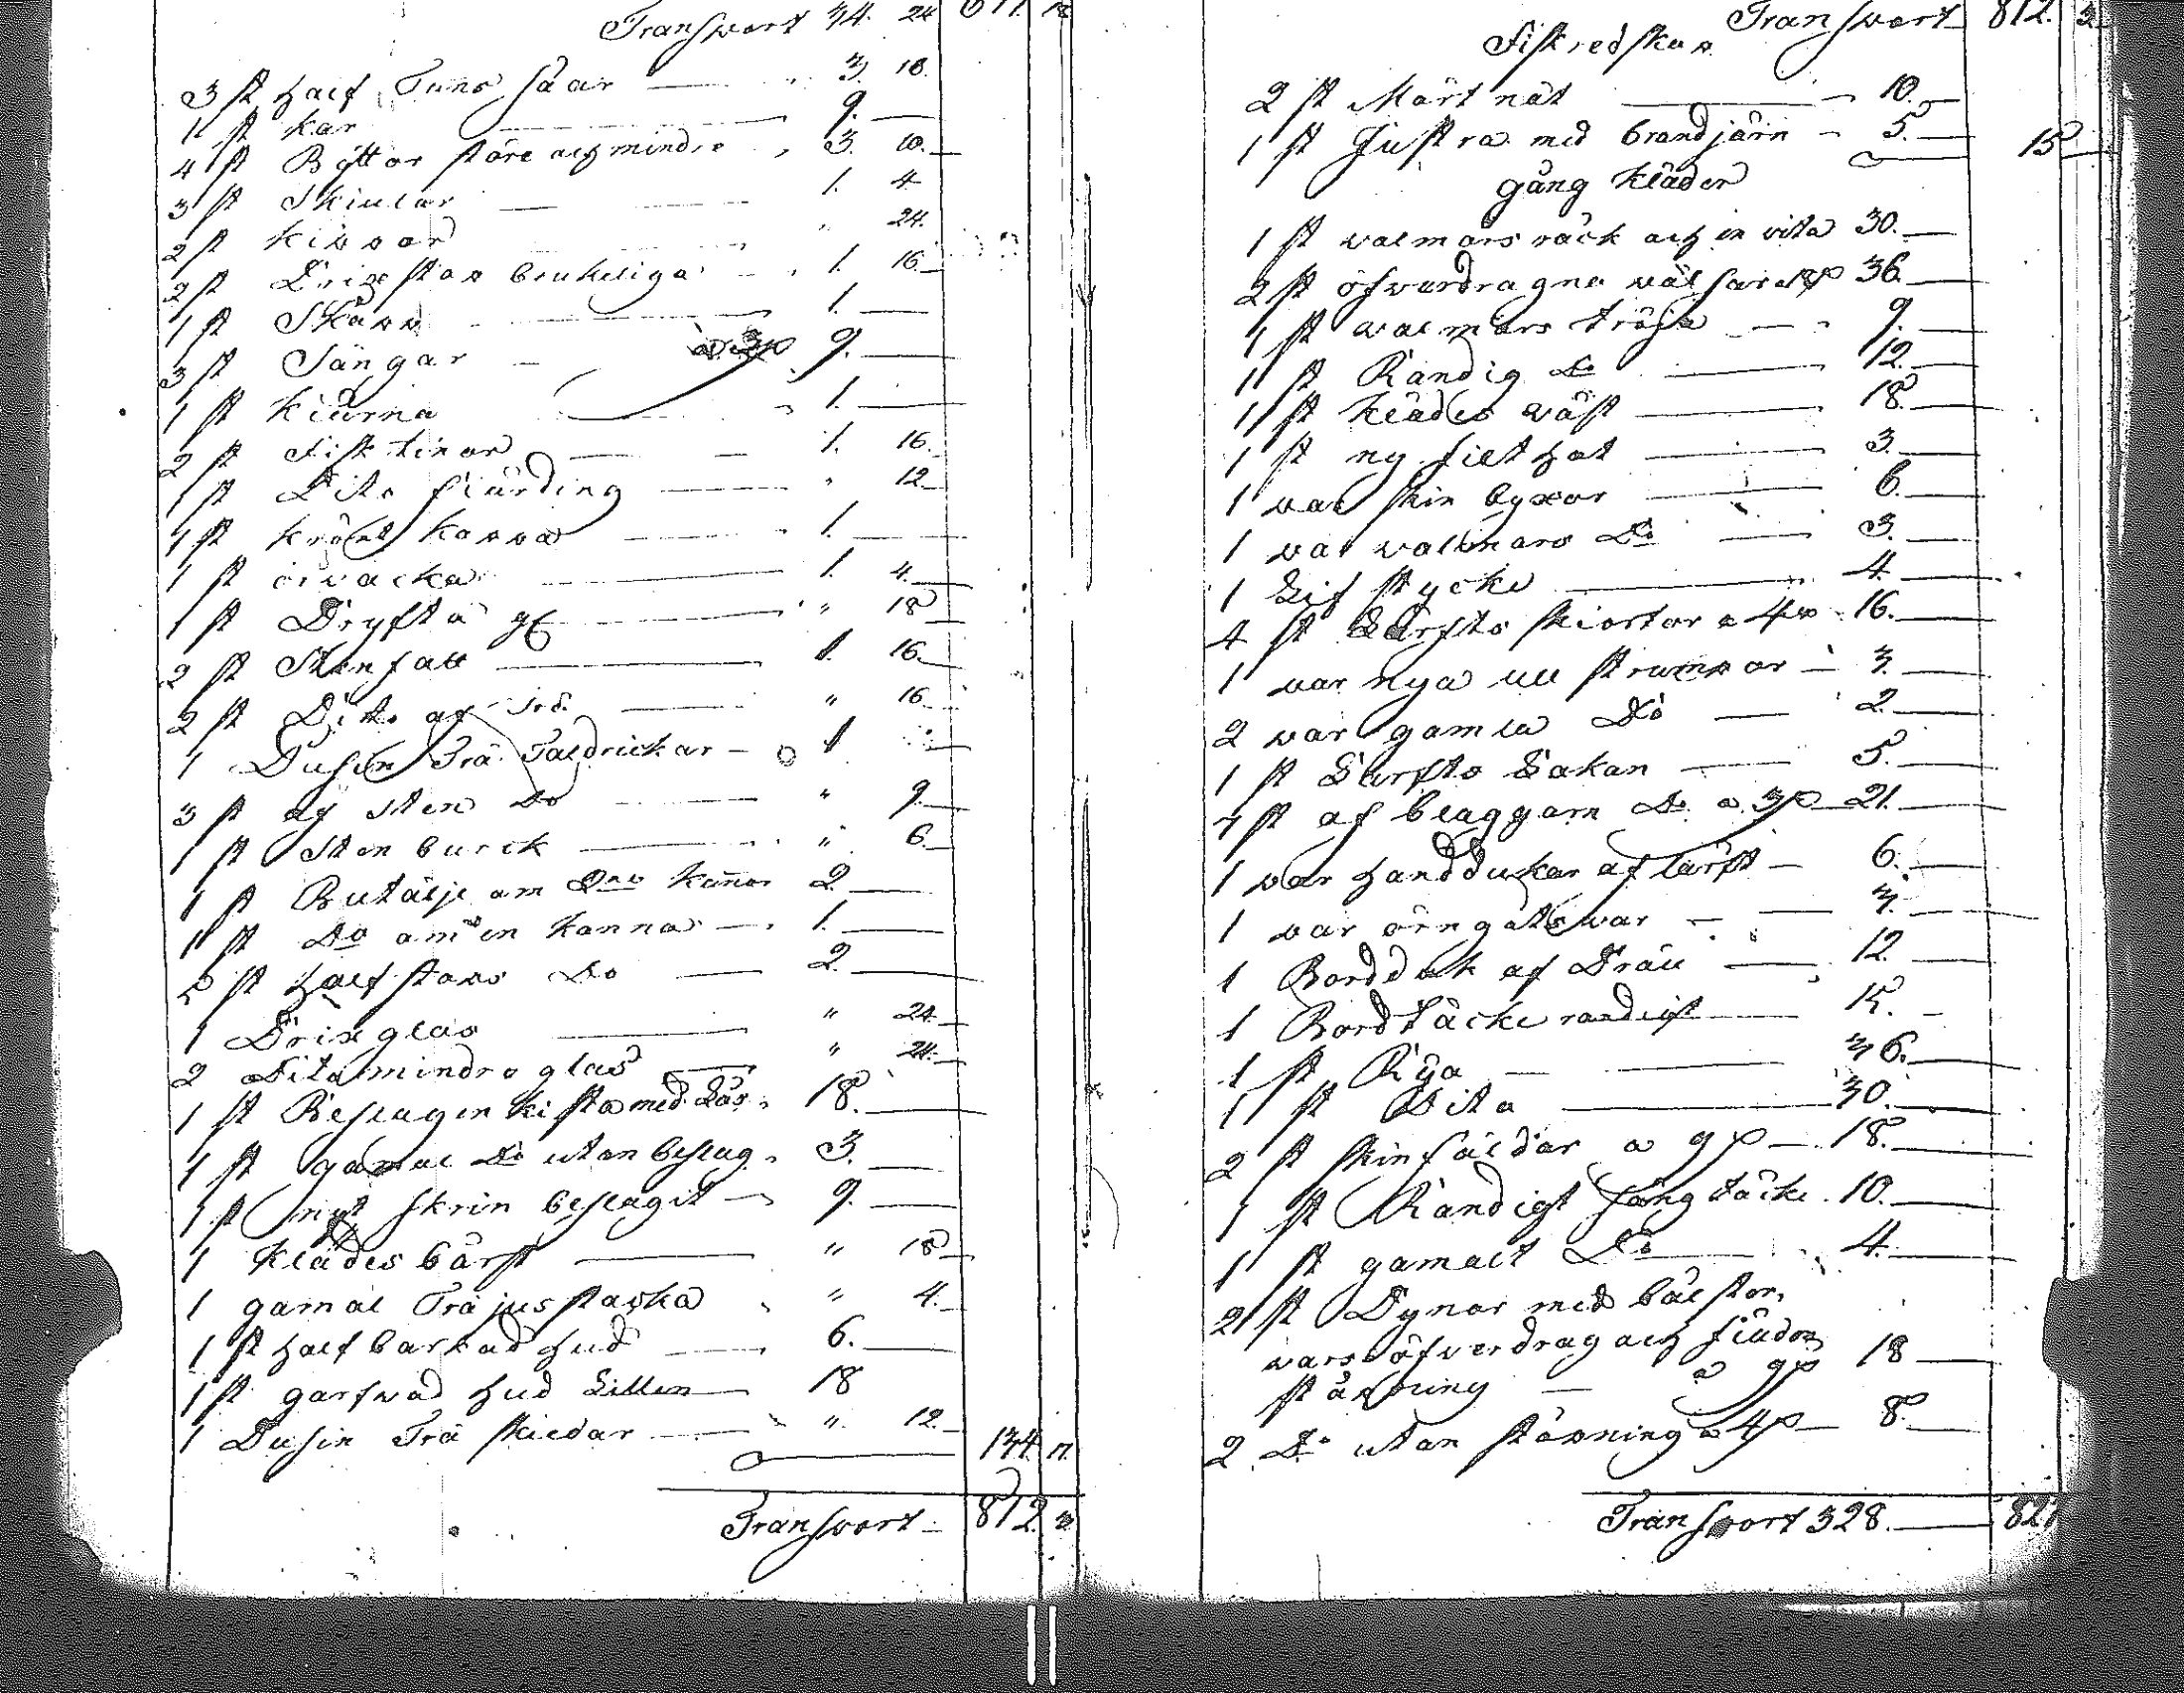 Transport 34. 24 677. 18
3 st half Tuns såar 3. 18.
1 st kar 9.
4 st Byttor störe och mindre 3. 10.
3 st Skiular 1. 4
2 st Kippor " 24.
2 st Drix stop brukeliga 1. 16
1 st Skåpp 1.
3 st Sängar 9.
1 st Kiärna 1.
2 st Fisk tinor 1. 16
1 st Dito fiärding " 12
1 st kappa 1.
1 st 1. 4.
1 st Dryfta " 18
2 st Stenfatt 1. 16.
2 st Dito af " 16
1 Dusin Trä Taldrickar 1
3 st af Sten Do " 9.
1 st Sten burck " 6.
1 st Butälje om kannor 2.
1 st Do om en kanna 1.
5 st half stops Do 2.
1 Drix glas " 24.
2 Dito mindre glas " 24.
1 st Beslagen kista med Lås 18.
1 st gamal Do utan beslag 3.
1 st nytt skrin beslagit 9.
1 klädes bårst " 18
1 gamal Trä jusstacka " 4.
1 st half barkad hud 6.
1 st garfwad hud Liten 18
1 Dusin Trä skiedar " 12
134. 17.
Transport 812. 3
Transport 812. 3.
Fiskredskap
2 st Mört nät 10.
1 st Liustra med brandjärn 5. 15
gång kläder
1 st walmars råck och en vita 30.
2 st öfverdragna pälsar 36.
1 st walmars tröja 9.
1 st Randig Do 12.
1 st klädes wäst 18.
1 st ny filt hat 3.
1 par skin byxor 6.
1 par wallmars Do 3.
1 Lif stycke 4.
4 st Lärfts skiortor a 4 16.
1 par nya ull strumpor 3.
2 par gamla Do 2.
1 st Lärfts Lakan 5.
7 st af blaggarn Do a 3 21.
1 par handdukar af lärft 6.
1 par örngåtswar 3.
1 Bordduk af Dräll 12.
1 Bordtäcke randigt 15.
1 st Rÿa 36.
1 st Dito 30.
2 st skinfäldar a 9 18.
1 st Randigt sängtäcke 10.
1 st gamalt Do 4.
2 st Dynor med bålstor,
wars öfverdrag och fiäder
stoppning a 9 18
2 Do utan stopning a 4 8.
Transport 328. 827